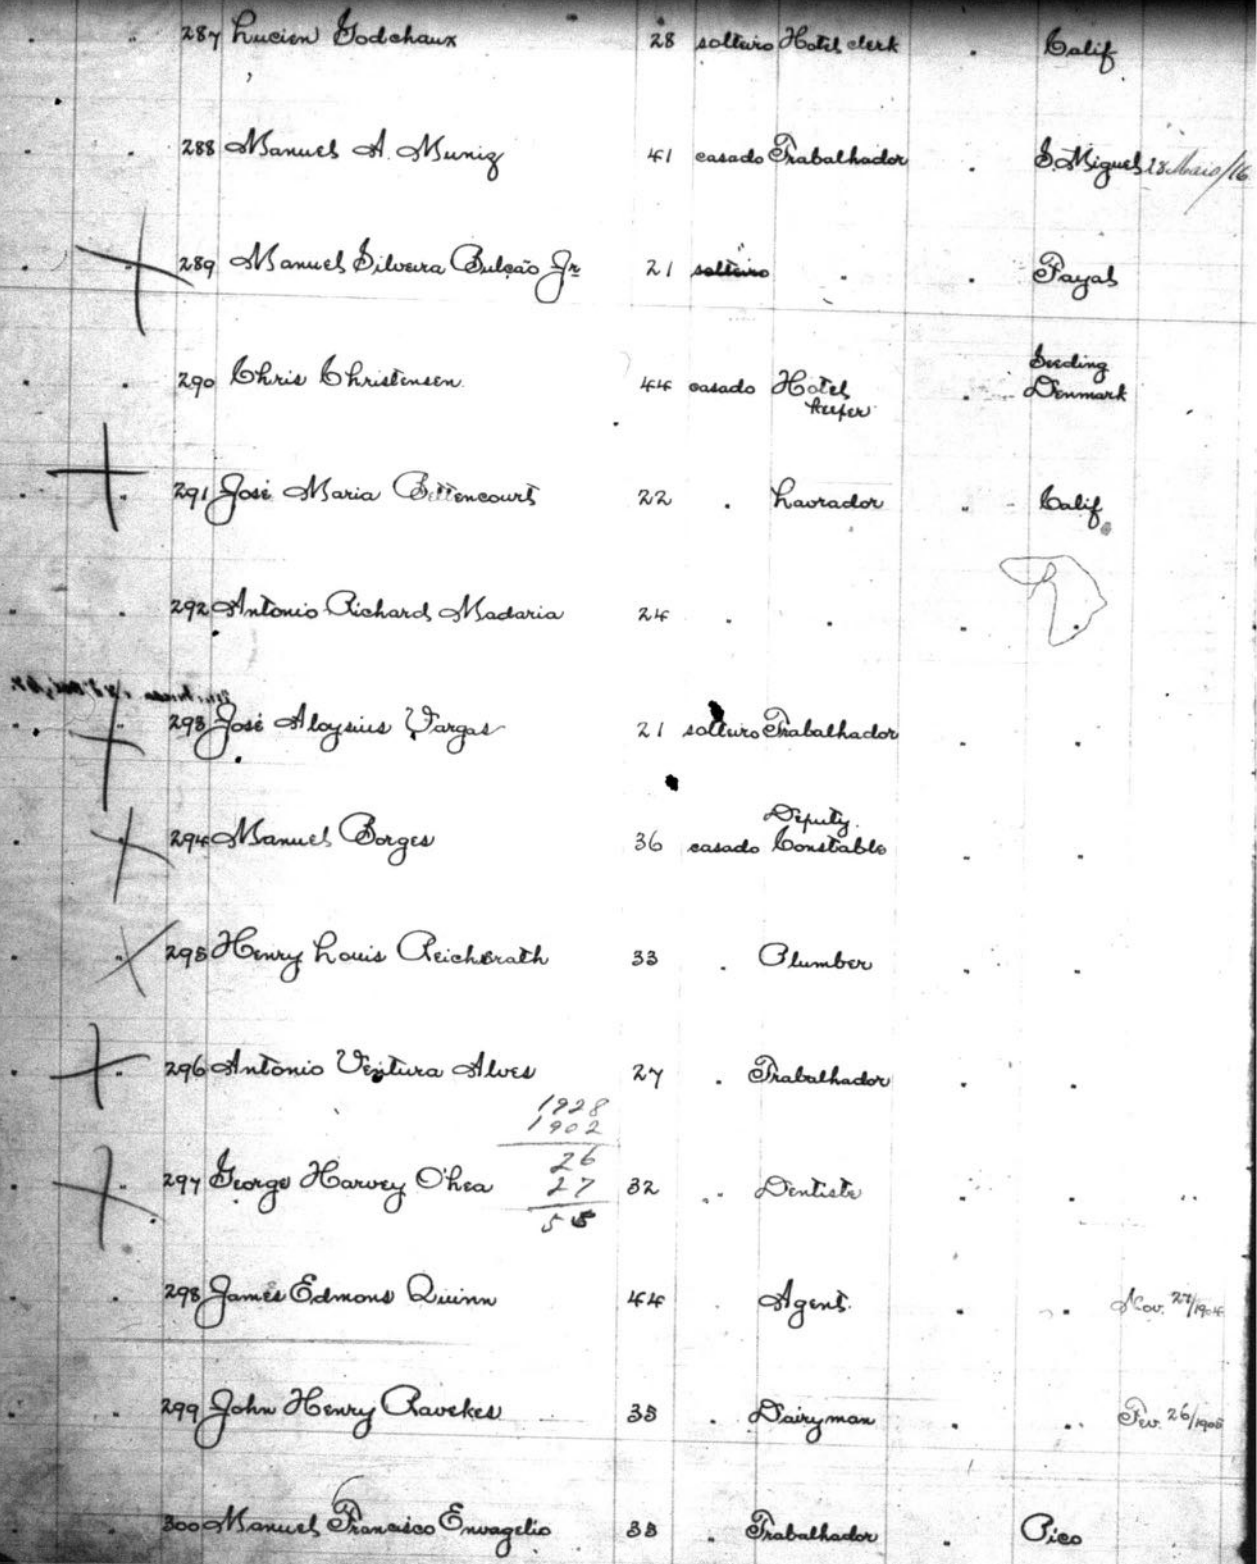 287 Lucien Godchaux 28 solteiro Hotel clerk . Calif
288 Manuel A. Muniz 41 casado Trabalhador . S. Miguel 28 Maio/16
289 Manuel Silveira Bulcão Jr 21 solteiro . . Fayal
290 Chris Christensen 44 casado Hotel keeper . Seeding Denmark
291 José Maria Bettencourt 22 . Lavrador " Calif
292 Antonio Richard Madaria 24 . . . .
293 José Aloysius Vargas 21 solteiro Trabalhador . .
294 Manuel Borges 36 casado Deputy Constable . .
295 Henry Louis Reichsrath 33 . Plumber . .
296 Antonio Ventura Alves 27 . Trabalhador . .
1928
1902
26
297 George Harvey O'hea 27 32 " Dentista . . "
55
298 James Edmons Quinn 44 . Agent . . Nov. 27/1904
299 John Henry Ravekes 35 . Dairyman . " Fev. 26/1905
300 Manuel Francisco Envagelio 35 . Trabalhador . Pico